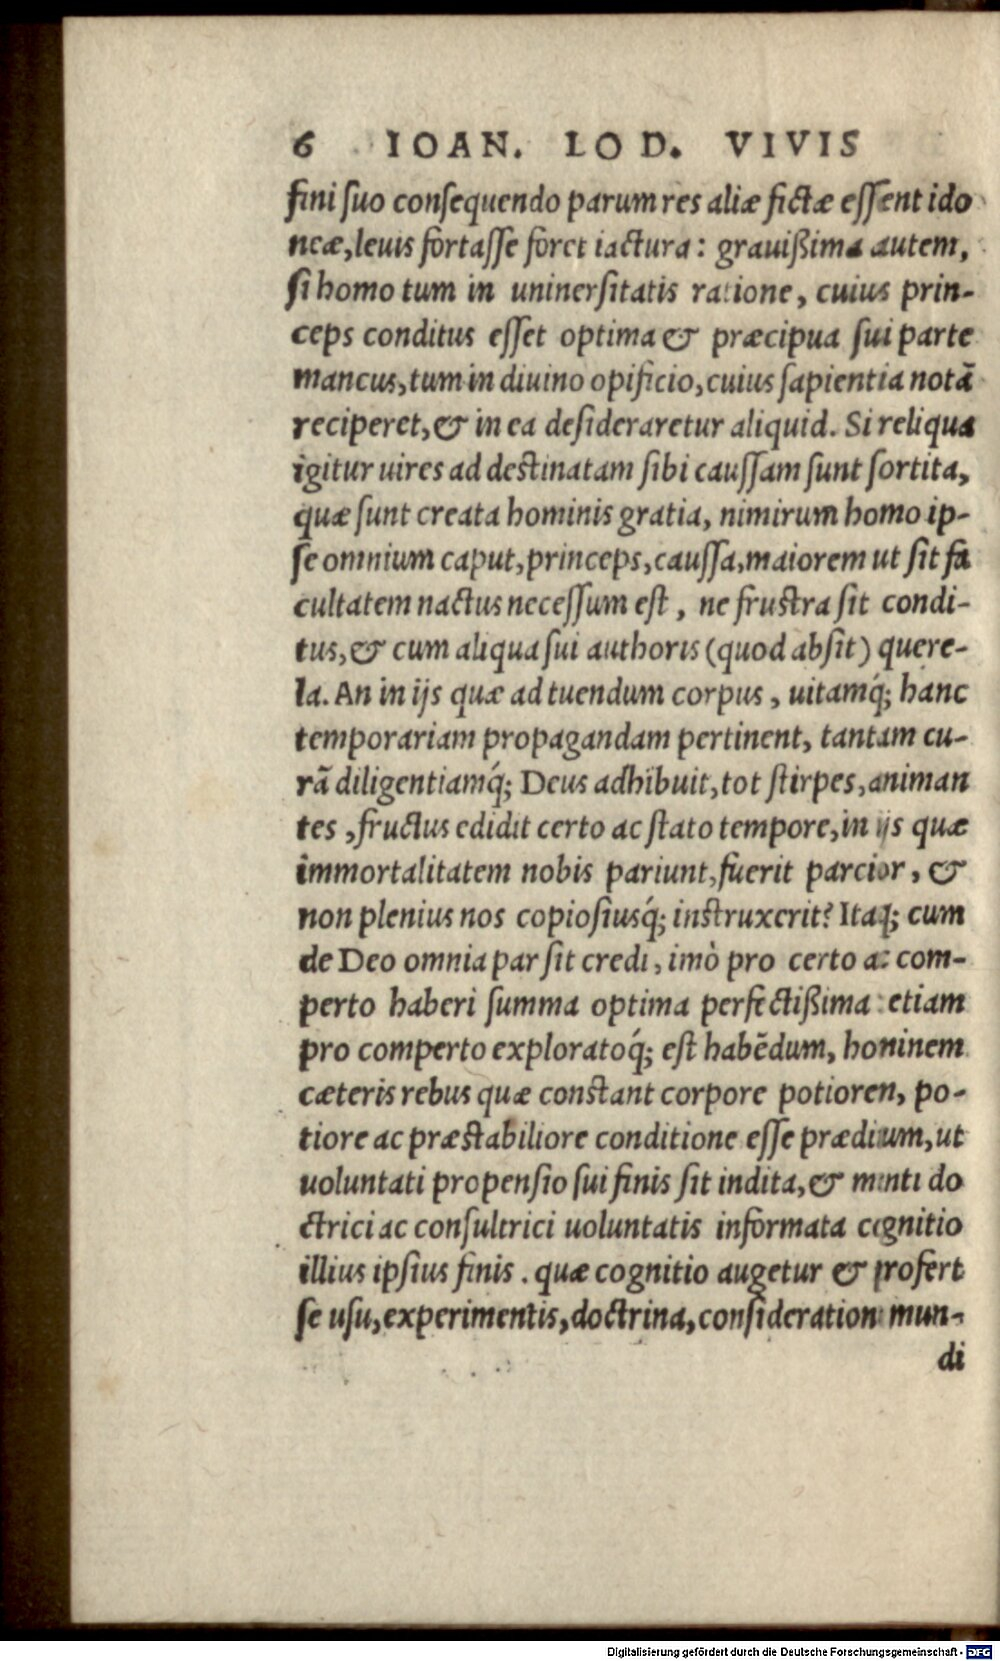 6 IOAN. LOD. VIVIS
fini ſuo conſequendo parum res aliæ fictæ eſſent ido
neæ, leuis fortaſſe foret iactura: grauißima autem,
ſi homo tum in uniuerſitatis ratione, cuius prin-
ceps conditus eſſet optima & præcipua ſui parte
mancus, tum in diuino opificio, cuius ſapientia notā
reciperet, & in ea deſideraretur aliquid. Si reliqua
igitur uires ad deſtinatam ſibi cauſſam ſunt ſortita,
quæ ſunt creata hominis gratia, nimirum homo ip-
ſe omnium caput, princeps, cauſſa, maiorem ut ſit fa
cultatem nactus neceſſum eſt, ne fruſtra ſit condi-
tus, & cum aliqua ſui authoris (quod abſit) quere-
la. An in ijs quæ ad tuendum corpus, uitamq́; hanc
temporariam propagandam pertinent, tantam cu-
rā diligentiamq́; Deus adhibuit, tot ſtirpes, animan
tes, fructus edidit certo ac ſtato tempore, in ijs quæ
immortalitatem nobis pariunt, fuerit parcior, &
non plenius nos copioſiusq́; inſtruxerit? Itaq; cum
de Deo omnia par ſit credi, imò pro certo ac com-
perto haberi ſumma optima perfectißima: etiam
pro comperto exploratoq́; eſt habēdum, hominem
cæteris rebus quæ conſtant corpore potiorem, po-
tiore ac præſtabiliore conditione eſſe præditum, ut
uoluntati propenſio ſui finis ſit indita, & menti do
ctrici ac conſultrici uoluntatis informata cognitio
illius ipſius finis. quæ cognitio augetur & profert
ſe uſu, experimentis, doctrina, conſideratione mun-
di
Digitalisierung gefördert durch die Deutsche Forschungsgemeinschaft - DFG